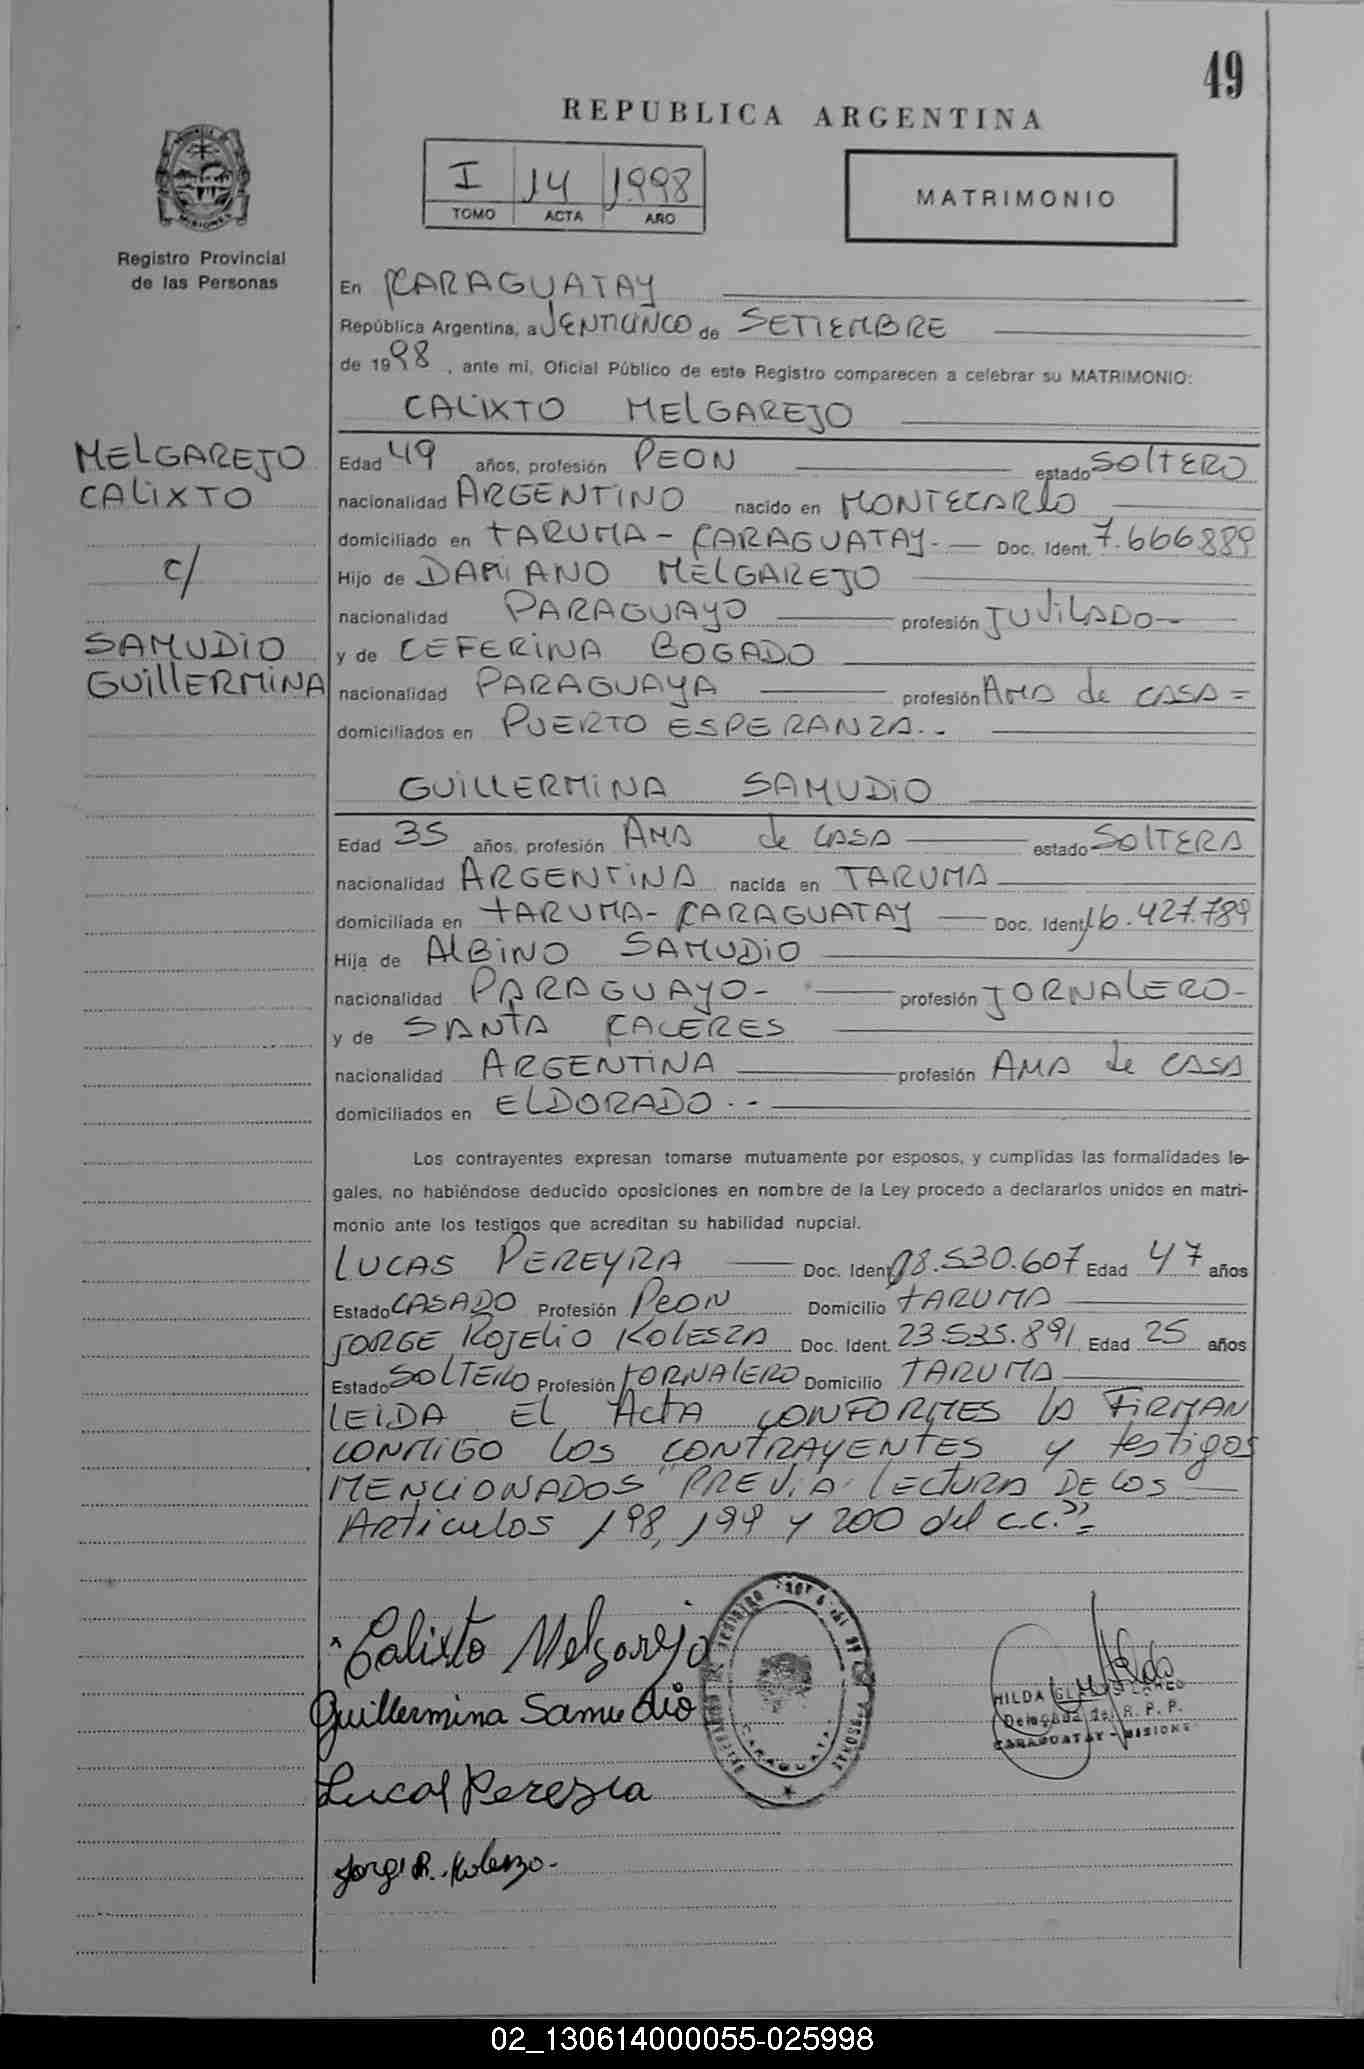 49
REPUBLICA ARGENTINA
I 14 1998
TOMO ACTA AÑO
MATRIMONIO
MISIONES
Registro Provincial
de las Personas
En CARAGUATAY
República Argentina, a VENTICINCO de SETIEMBRE
de 1998, ante mi, Oficial Público de este Registro comparecen a celebrar su MATRIMONIO:
CALIXTO MELGAREJO
MELGAREJO
CALIXTO
c/
SAMUDIO
GUILLERMINA
Edad 49 años, profesión PEON estado SOLTERO
nacionalidad ARGENTINO nacido en MONTECARLO
domiciliado en TARUMA - CARAGUATAY - Doc. Ident. 7.666889
Hijo de DAMIANO MELGAREJO
nacionalidad PARAGUAYO profesión JUVILADO -
y de CEFERINA BOGADO
nacionalidad PARAGUAYA profesión AMA de CASA =
domiciliados en PUERTO ESPERANZA. -
GUILLERMINA SAMUDIO
Edad 35 años, profesión AMA de CASA estado SOLTERA
nacionalidad ARGENTINA nacida en TARUMA
domiciliada en TARUMA - CARAGUATAY Doc. Ident. 16.427.789
Hija de ALBINO SAMUDIO
nacionalidad PARAGUAYO - profesión JORNALERO -
y de SANTA CACERES
nacionalidad ARGENTINA profesión AMA de CASA
domiciliados en ELDORADO. -
Los contrayentes expresan tomarse mutuamente por esposos, y cumplidas las formalidades le-
gales, no habiéndose deducido oposiciones en nombre de la Ley procedo a declararlos unidos en matri-
monio ante los testigos que acreditan su habilidad nupcial.
LUCAS PEREYRA Doc. Ident. 08.530.607 Edad 47 años
Estado CASADO Profesión PEON Domicilio TARUMA
JORGE ROJELIO KOLESZA Doc. Ident. 23.535.891 Edad 25 años
Estado SOLTERO Profesión JORNALERO Domicilio TARUMA
LEIDA EL ACTA CONFORMES LA FIRMAN
CONMIGO LOS CONTRAYENTES y testigos
MENCIONADOS "PREVIA LECTURA DE LOS
Articulos 198, 199 y 200 del c.c." =
Calixto Melgarejo
Guillermina Samudio
HILDA
Delegada del R. P. P.
CARAGUATAY - MISIONES
Lucas Pereyra
Jorge R. Kolesza -
02_130614000055-025998